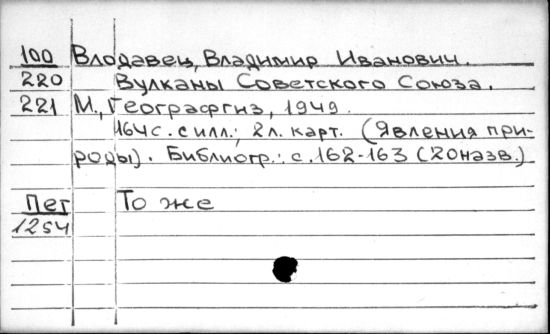 100 Влодавец, Владимир Иванович.
220 Вулканы Советского Союза.
221 М., Географгиз, 1949.
164с. с илл.; 2л. карт. (Явления при-
роды). Библиогр.: с.162-163 (20назв.)
Пет То же
1254